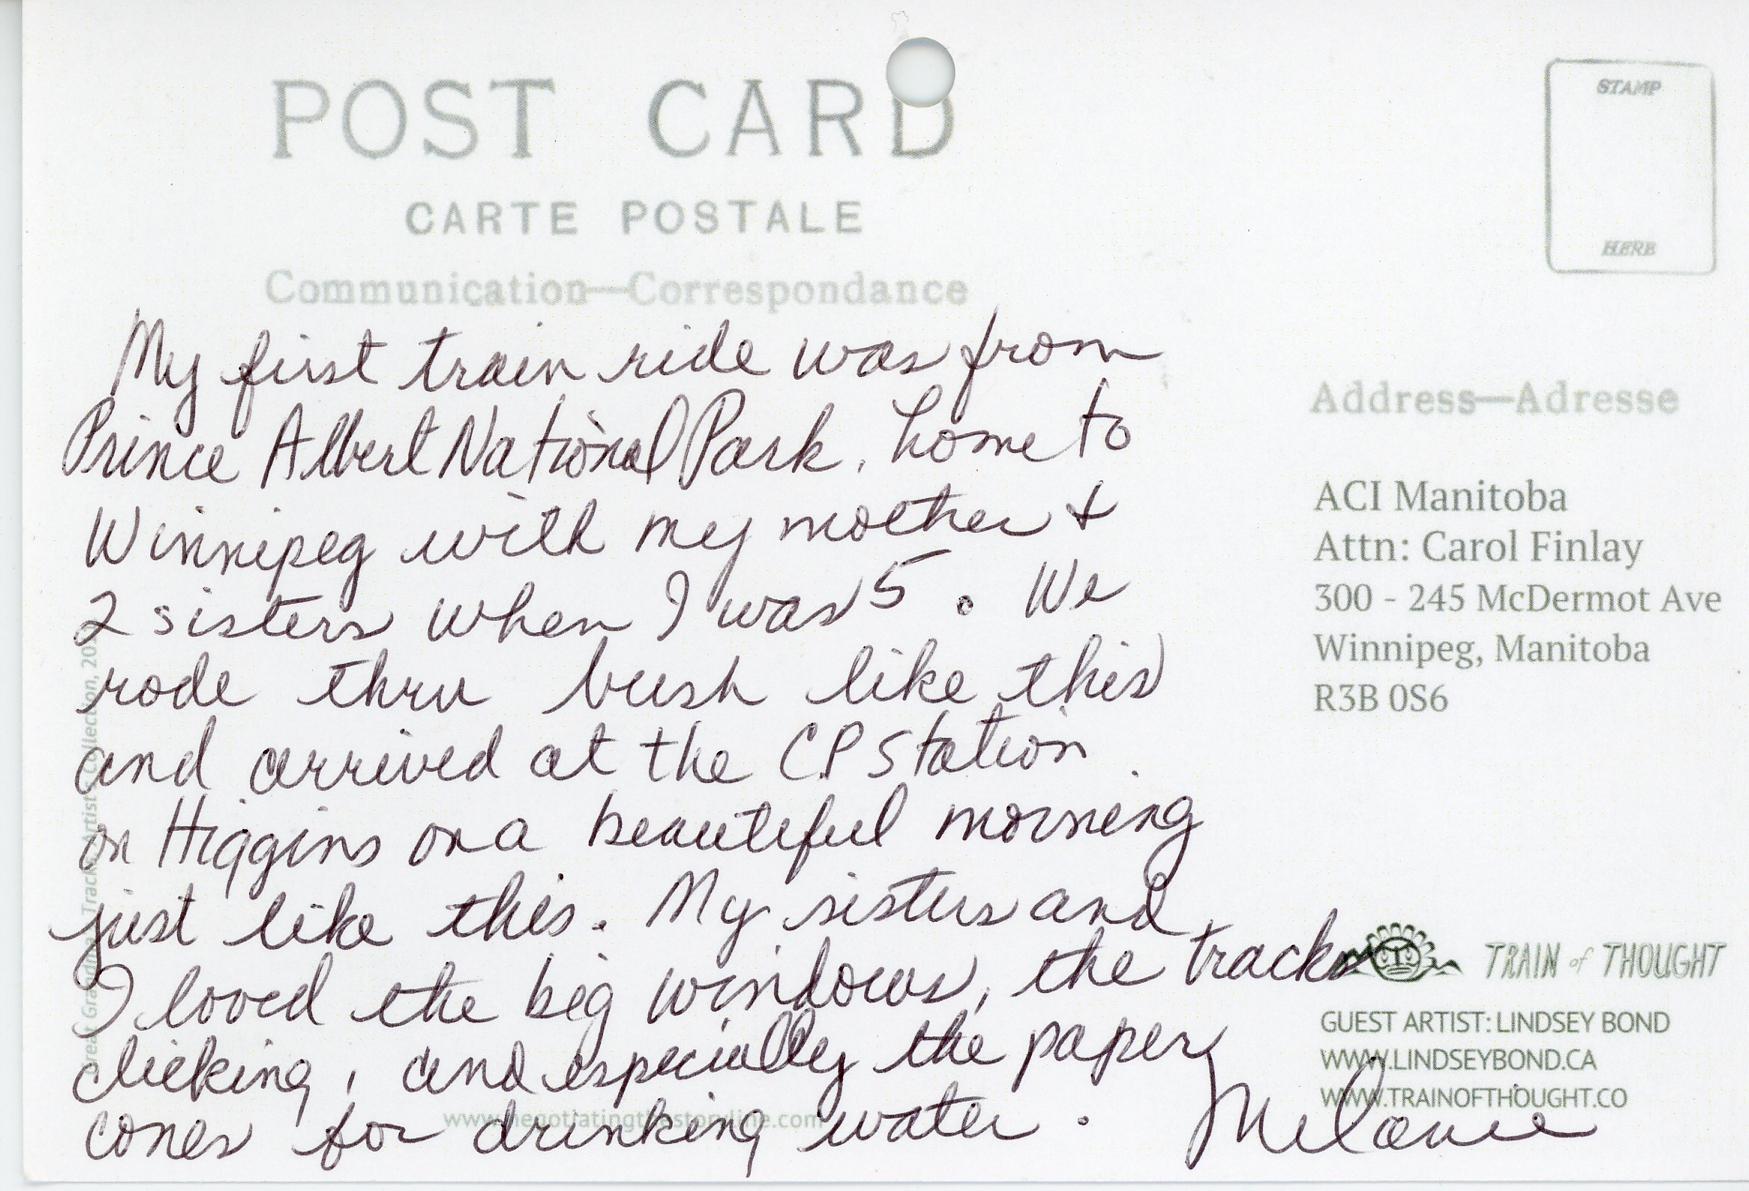 POST CARD
CARTE POSTALE
Communication—Correspondance
STAMP
HERE
My first train ride was from
Prince Albert National Park, home to
Winnipeg with my mother &
2 sisters when I was 5. We
rode thru bush like this
and arrived at the CP Station
on Higgins on a beautiful morning
just like this. My sisters and
I loved the big windows, the tracks
clicking, and especially the paper
cones for drinking water.
Melanie
Address—Adresse
ACI Manitoba
Attn: Carol Finlay
300 - 245 McDermot Ave
Winnipeg, Manitoba
R3B 0S6
TRAIN of THOUGHT
GUEST ARTIST: LINDSEY BOND
WWW.LINDSEYBOND.CA
WWW.TRAINOFTHOUGHT.CO
www.negotiatingthestoryline.com
Track Artist Collection, 20